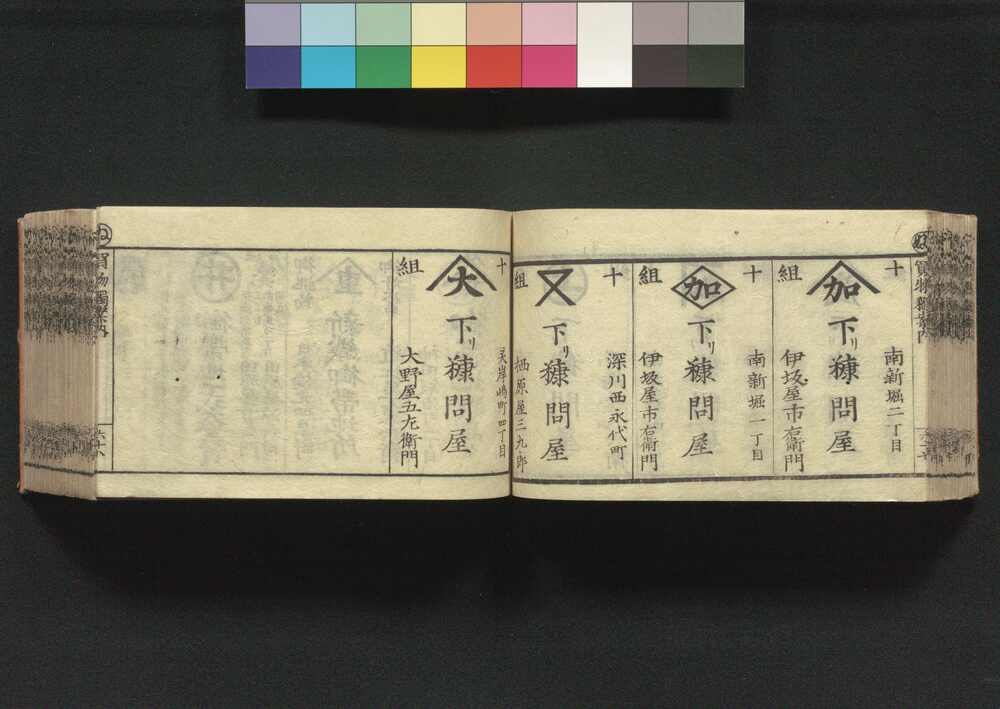 十
組
南新堀二丁目
加
下リ糠問屋
伊坂屋市右衛門
十
組
南新堀一丁目
加
下リ糠問屋
伊坂屋市右衛門
十
組
深川西永代町
又
下リ糠問屋
栖原屋三九郎
十
組
大
下リ糠問屋
大野屋五左衛門
ぬ
買物獨案内
六十八